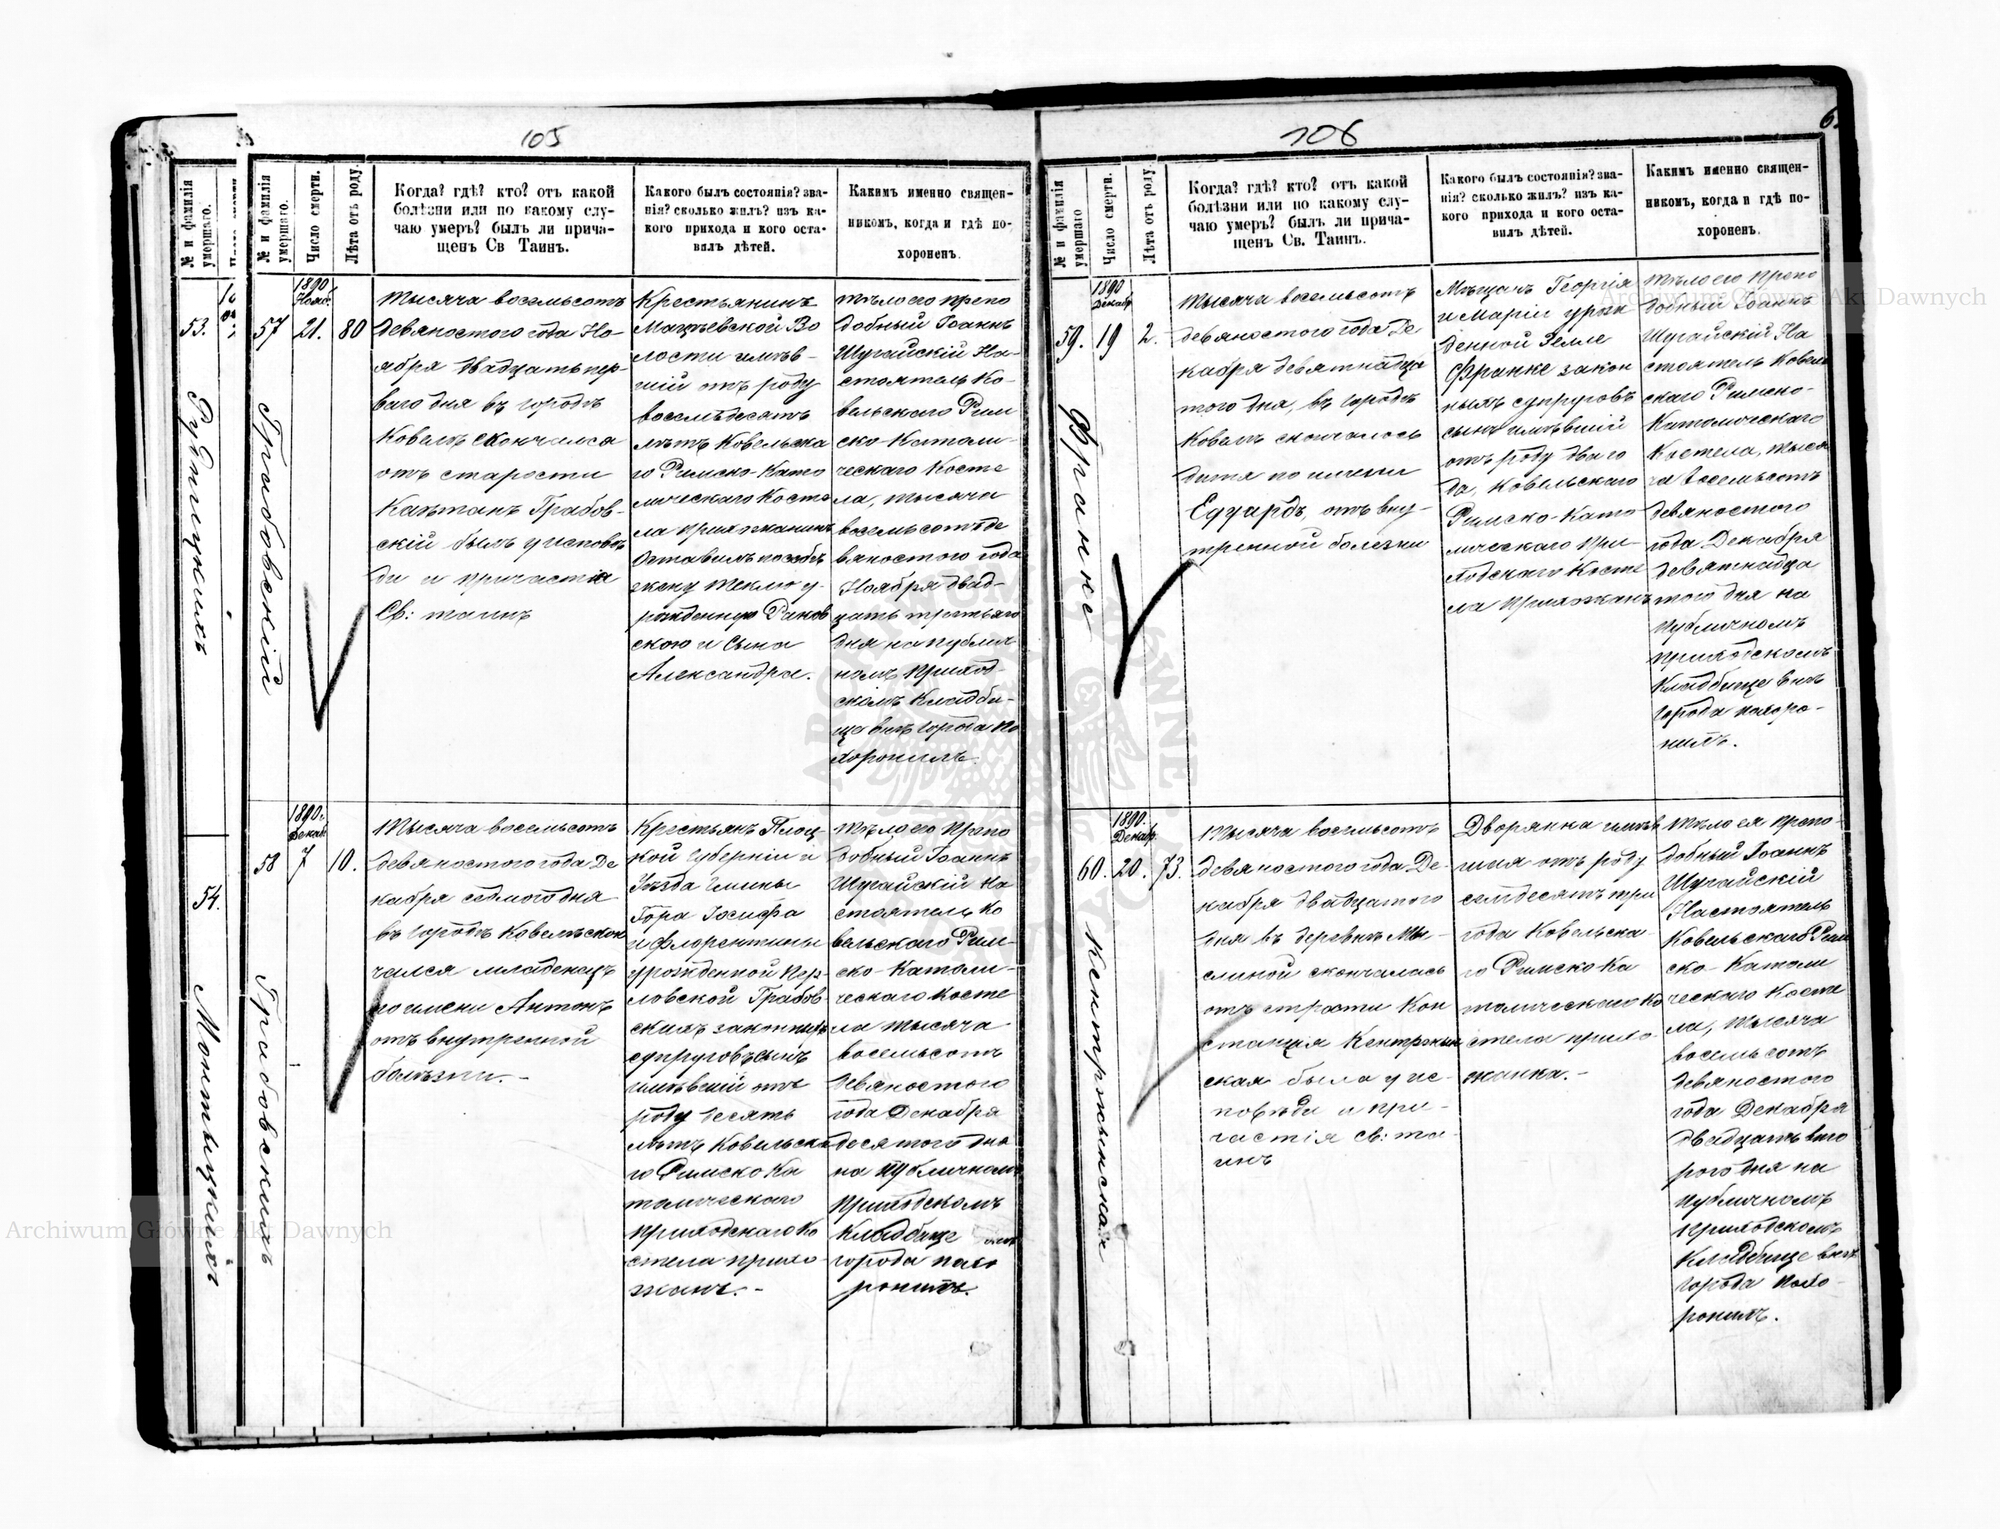 105
№ и фамилія умершаго.
53.
Рубіпецкихъ
54.
Монтыцкій
№ и фамилія умершаго.
Число смерти.
Лѣта отъ роду.
Когда? гдѣ? кто? отъ какой
болѣзни или по какому слу-
чаю умеръ? былъ ли прича-
щенъ Св Таинъ.
Какого былъ состоянія? зва-
нія? сколько жилъ? изъ ка-
кого прихода и кого оста-
вилъ дѣтей.
Какимъ именно священ-
никомъ, когда и гдѣ по-
хороненъ.
57
Грабовскій
1890
Нояб.
21.
80
Тысяча восемьсотъ
девяностого года Но-
ября двадцать пер-
ваго дня въ городѣ
Ковелѣ скончался
отъ старости
Каэтанъ Грабов-
скій былъ у исповѣ
ди и причастія
Св: таинъ
Крестьянинъ
Мацѣевской Во
лости имѣв-
шій отъ роду
восемьдесятъ
лѣтъ Ковельска
го Римско-Като
лическаго Косте
ла прихожанинъ
Оставилъ по себѣ
жену Теклю у-
рожденную Раков
скою и Сына
Александра.
Тѣло его препо
добный Іоаннъ
Шугайскій На-
стоятель Ко-
вельскаго Рим
ско-Католи-
ческаго Косте
ла, тысяча
восемьсотъ де
вяностого года
Ноября двад-
цать третьяго
дня на публич
номъ приход-
скомъ Кладби-
ще внѣ города по
хоронилъ.
58
Грабовскихъ
1890.
Декаб.
7
10.
Тысяча восемьсотъ
девяностого года Де
кабря седмого дня
въ городѣ Ковелѣ скон
чался младенецъ
по имени Антонъ
отъ внутренной
болѣзни.-
Крестьянъ Плоц-
кой Губерніи и
Уѣзда Гмины
Гора Іосифа
и Флорентины
урожденной Кер
ловской Грабов
скихъ законныхъ
супруговъ сынъ
имѣвшій отъ
роду десять
лѣтъ Ковельска
го Римско Ка
толическаго
приходскаго Ко
стела прихо-
жанъ.-
Тѣло его препо
добный Іоаннъ
Шугайскій На
стоятель Ко
вельскаго Рим-
ско-Католи-
ческаго Косте
ла тысяча
восемьсотъ
девяностого
года Декабря
десятого дня
на публичномъ
приходскомъ
Кладбище внѣ
города похо
ронилъ.
106
№ и фамилія умершаго
Число смерти.
Лѣта отъ роду.
Когда? гдѣ? кто? отъ какой
болѣзни или по какому слу-
чаю умеръ? былъ ли прича-
щенъ Св. Таинъ.
Какого былъ состоянія? зва-
нія? сколько жилъ? изъ ка-
кого прихода и кого оста-
вилъ дѣтей.
Какимъ именно священ-
никомъ, когда и гдѣ по-
хороненъ.
59.
Франке
1890
Декабр
19
2.
Тысяча восемьсотъ
девяностого года Де
кабря девятнадца
того дня, въ городѣ
Ковелѣ скончалось
дитя по имени
Едуардъ, отъ вну-
тренной болезни
Мѣщанъ Георгія
и Маріи урож
денной Зелле
Франке закон
ныхъ супруговъ
сынъ имѣвшій
отъ роду два го
да, Ковельскаго
Римско-Като
лическаго При-
ходскаго Косте
ла прихожанъ
Тѣло его препо
добный Іоаннъ
Шугайскій На
стоятель Ковель
скаго Римско-
Католическаго
Костела, тыся
ча восемьсотъ
девяностого
года Декабря
девятнадца
того дня на
публичномъ
приходскомъ
Кладбище внѣ
города похоро-
нилъ.
60.
Кентржинская
1890.
Декабр.
20.
73.
Тысяча восемьсотъ
девяностого года Де-
кабря двадцатого
дня въ деревнѣ Мы-
слиной скончалась
отъ страсти Кон
станція Кентржин
ская была у ис-
повѣди и при-
частія св: та-
инъ
Дворянка имѣв
шая отъ роду
семдесятъ три
года Ковельска-
го Римско Ка
толическаго Ко
стела прихо-
жанка.-
Тѣло ея препо-
добный Іоаннъ
Шугайскій
Настоятель
Ковельскаго Рим
ско-Католи
ческаго Косте
ла, тысяча
восемьсотъ
девяностого
года Декабря
двадцать вто
рого дня на
публичномъ
приходскомъ
Кладбище внѣ
города похо-
ронилъ.
Archiwum Główne Akt Dawnych
Archiwum Główne Akt Dawnych